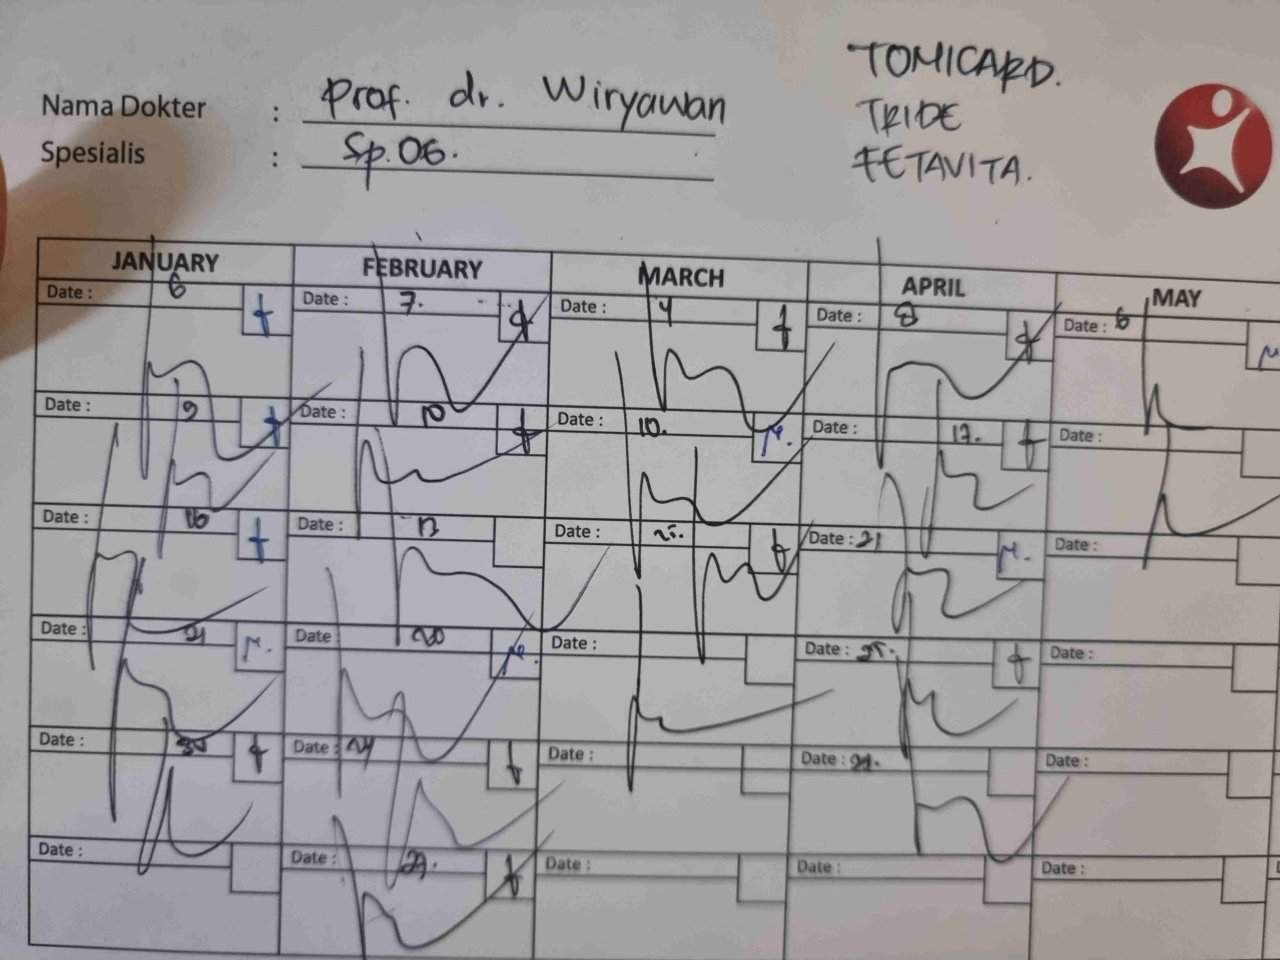 TOMICARD.
Nama Dokter : Prof. dr. Wiryawan
TRIDE
Spesialis : Sp.OG.
FETAVITA.
JANUARY FEBRUARY MARCH APRIL MAY
Date : 6 Date : 7. Date : 4 Date : 8 Date : 6
Date : 9 Date : 10 Date : 10. Date : 17. Date :
Date : 16 Date : 13 Date : 25. Date : 21 Date :
Date : 21 Date 20 Date : Date : 25. Date :
Date : 30 Date : 24 Date : Date : 29. Date :
Date : Date : 29. Date : Date : Date :